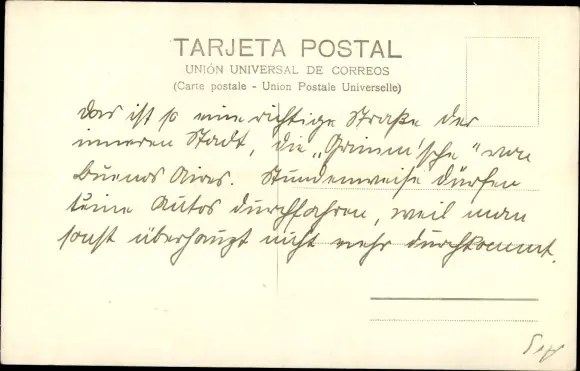 TARJETA POSTAL
UNIÓN UNIVERSAL DE CORREOS
(Carte postale - Union Postale Universelle)
Das ist so eine richtige Straße der
inneren Stadt, die „Grimm'sche" von
Buenos Aires. Stundenweise dürfen
keine Autos durchfahren, weil man
sonst überhaupt nicht mehr durchkommt.